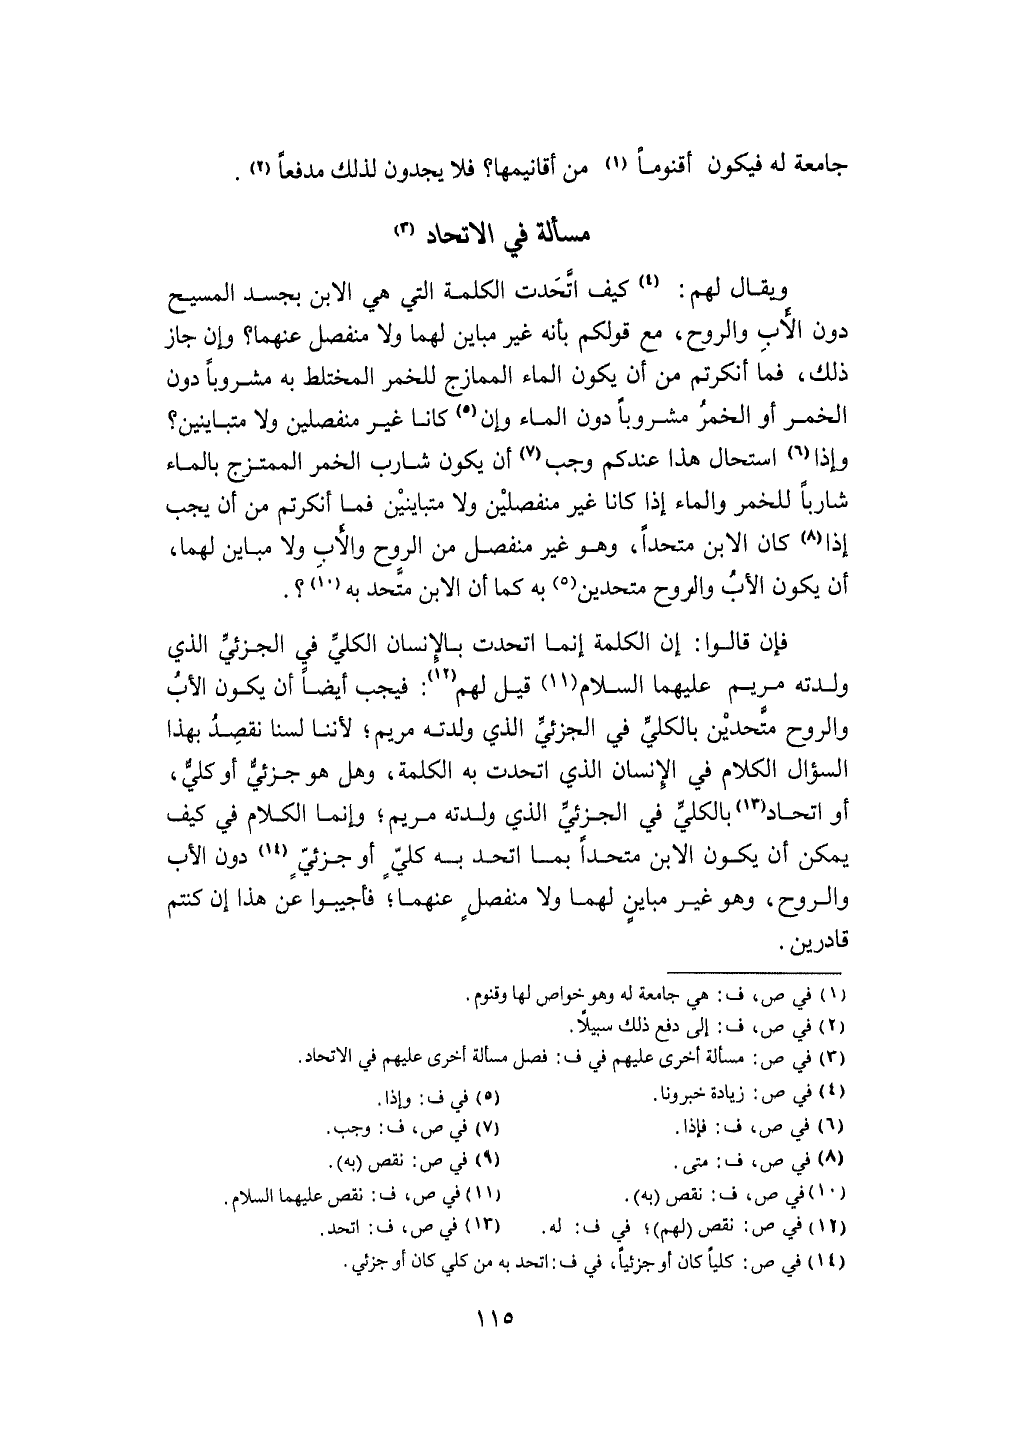 جامعة له فيكون أقنوماً (١) من أقانيمها؟ فلا يجدون لذلك مدفعاً (٢) .
مسألة في الاتحاد (٣)
ويقال لهم: (٤) كيف اتَّحَدت الكلمة التي هي الابن بجسد المسيح
دون الأَبِ والروح، مع قولكم بأنه غير مباين لهما ولا منفصل عنهما؟ وإن جاز
ذلك، فما أنكرتم من أن يكون الماء الممازج للخمر المختلط به مشروباً دون
الخمر أو الخمرُ مشروباً دون الماء وإن(٥) كانا غير منفصلين ولا متباينين؟
وإذا(٦) استحال هذا عندكم وجب(٧) أن يكون شارب الخمر الممتزج بالماء
شارباً للخمر والماء إذا كانا غير منفصليْن ولا متباينيْن فما أنكرتم من أن يجب
إذا(٨) كان الابن متحداً، وهو غير منفصل من الروح والأَبِ ولا مباين لهما،
أن يكون الأبُ والروح متحدين(٥) به كما أن الابن متَّحد به (١٠)؟.
فإن قالوا: إن الكلمة إنما اتحدت بالإنسان الكليِّ في الجزئيِّ الذي
ولدته مريم عليهما السلام(١١) قيل لهم(١٢): فيجب أيضاً أن يكون الأبُ
والروح متَّحديْن بالكليِّ في الجزئيِّ الذي ولدته مريم؛ لأننا لسنا نقصِدُ بهذا
السؤال الكلام في الإنسان الذي اتحدت به الكلمة، وهل هو جزئيٌّ أو كليٌّ،
أو اتحاد(١٣) بالكليِّ في الجزئيِّ الذي ولدته مريم؛ وإنما الكلام في كيف
يمكن أن يكون الابن متحداً بما اتحد به كليّ ٍ أو جزئيّ ٍ (١٤) دون الأب
والروح، وهو غير مباينٍ لهما ولا منفصل ٍ عنهما؛ فأجيبوا عن هذا إن كنتم
قادرين .
(١) في ص، ف: هي جامعة له وهو خواص لها وقنوم.
(٢) في ص، ف: إلى دفع ذلك سبيلًا.
(٣) في ص: مسألة أخرى عليهم في ف: فصل مسألة أخرى عليهم في الاتحاد.
(٤) في ص: زيادة خبرونا. (٥) في ف: وإذا.
(٦) في ص، ف: فإذا. (٧) في ص، ف: وجب.
(٨) في ص، ف: متى. (٩) في ص: نقص (به).
(١٠) في ص، ف: نقص (به). (١١) في ص، ف: نقص عليهما السلام.
(١٢) في ص: نقص (لهم)؛ في ف: له. (١٣) في ص، ف: اتحد.
(١٤) في ص: كلياً كان أو جزئياً، في ف: اتحد به من كلي كان أو جزئي.
١١٥